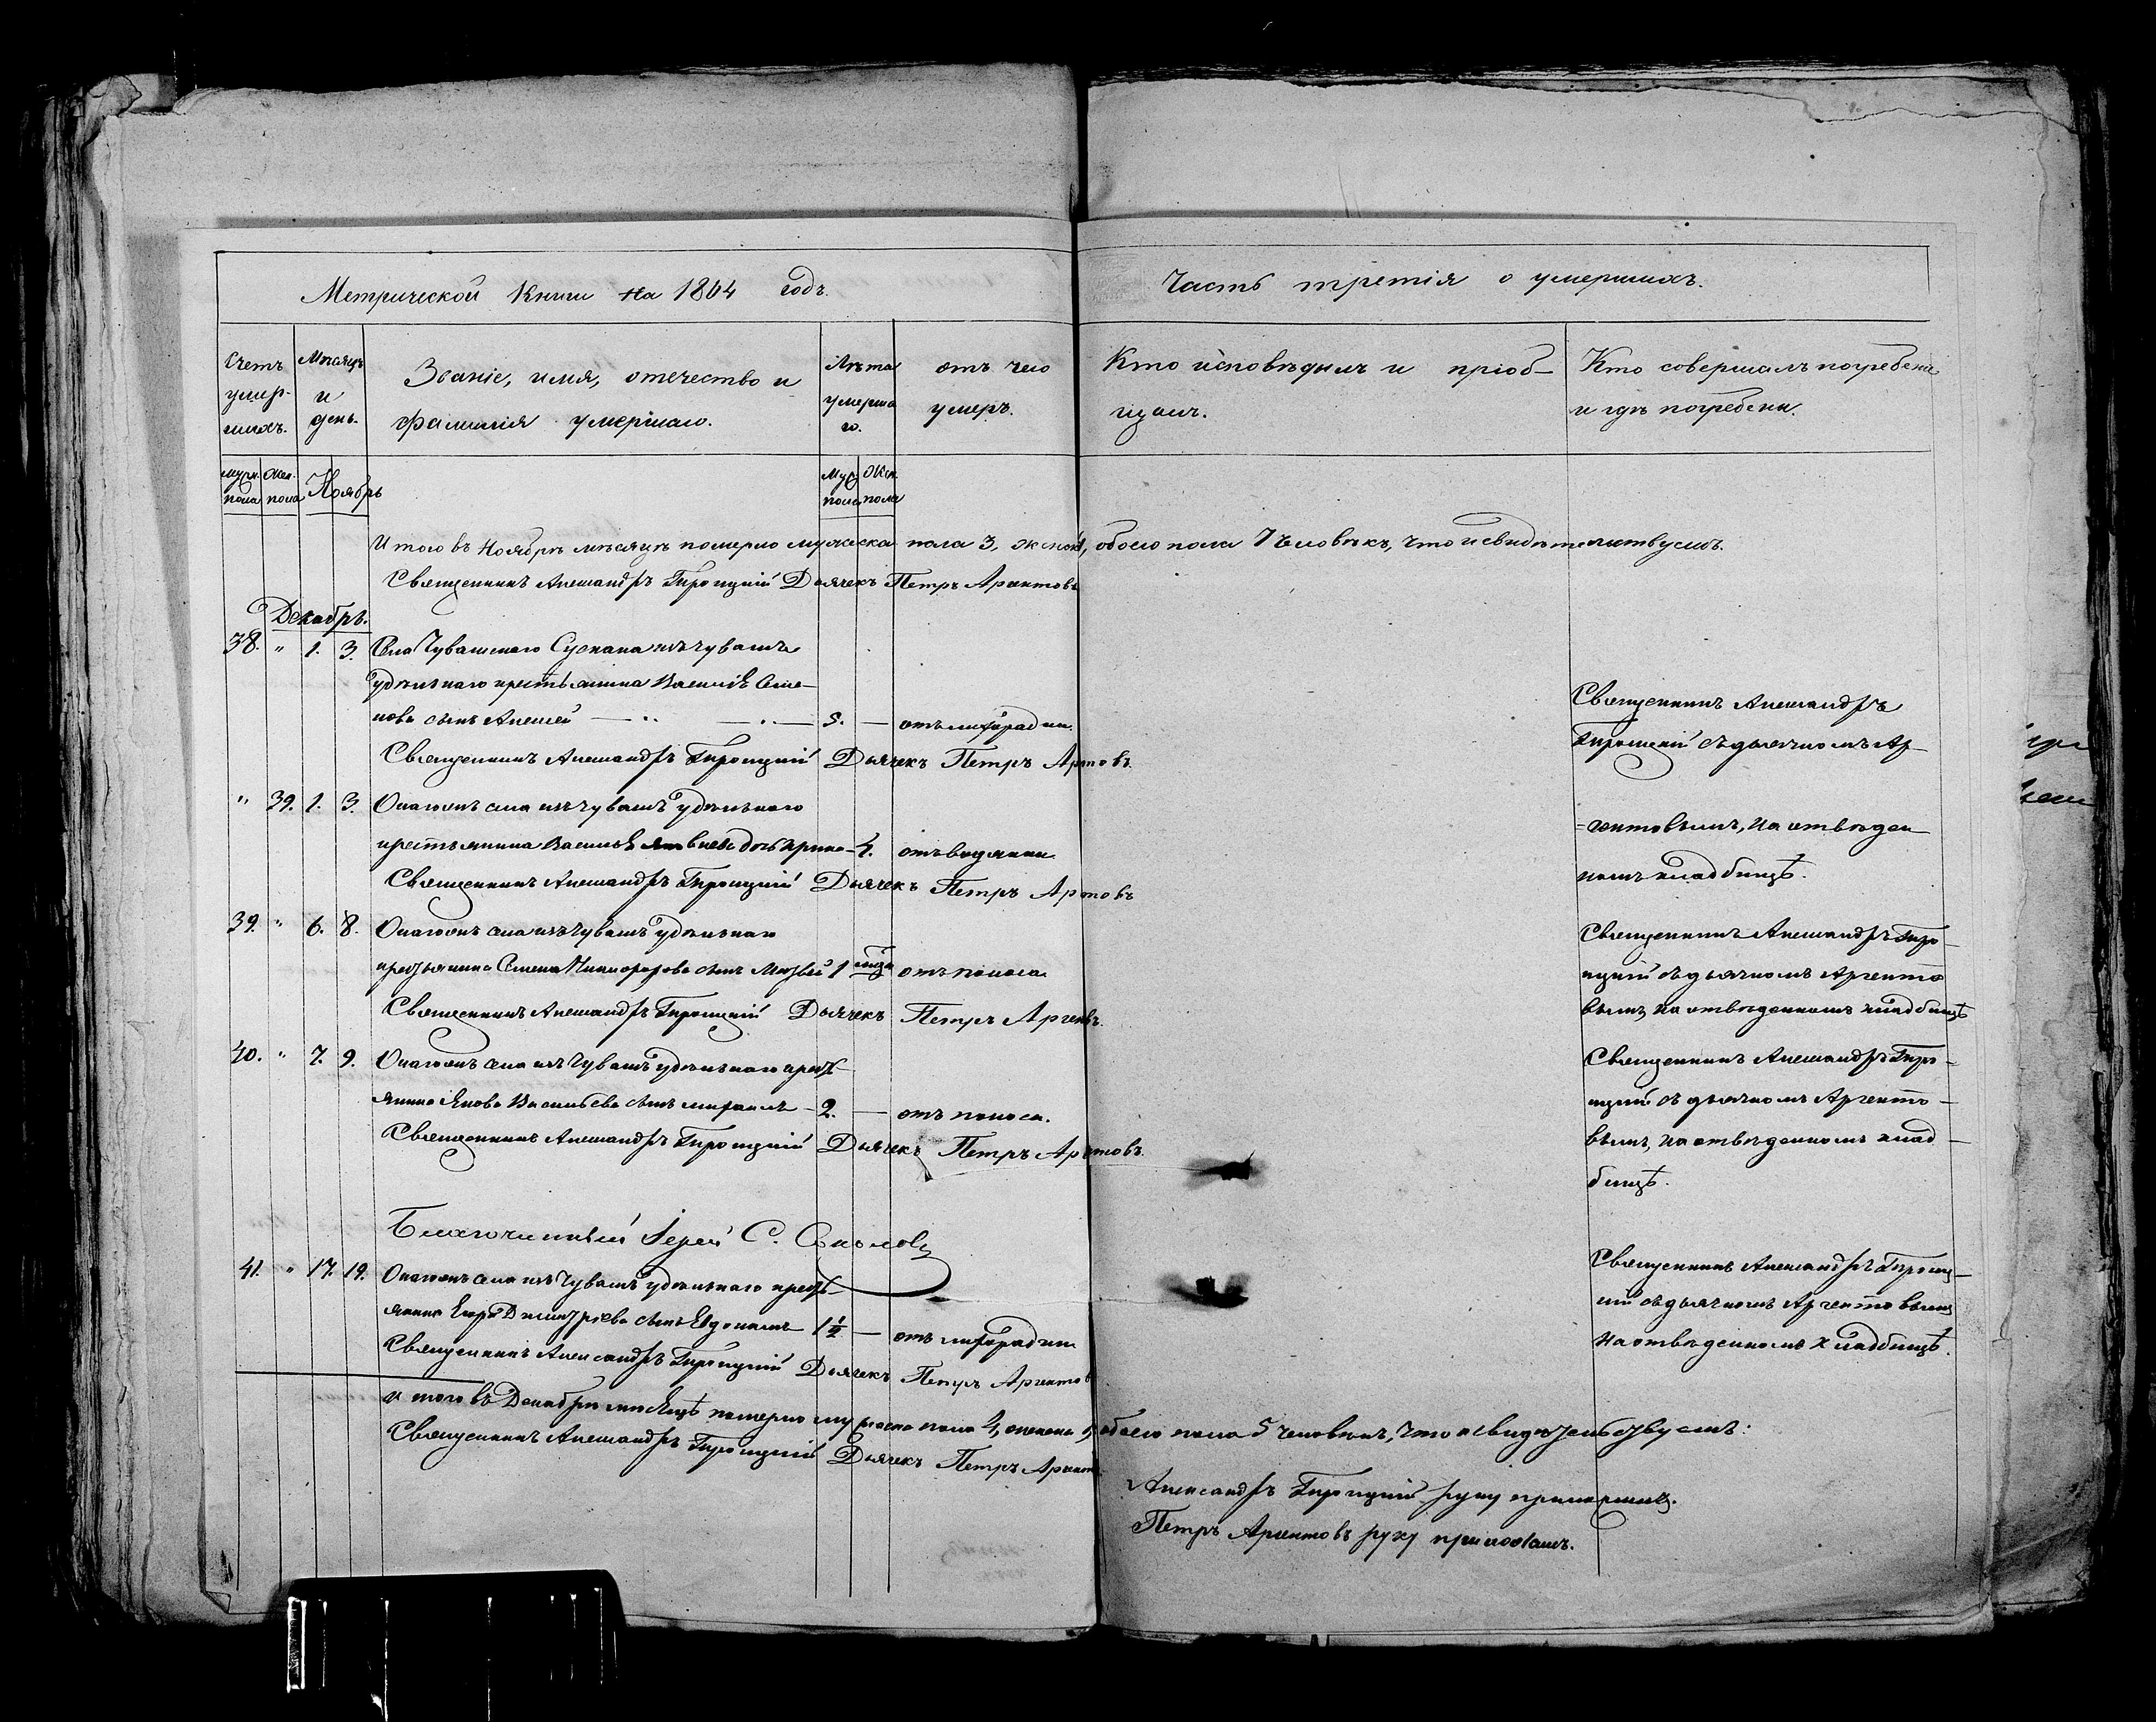 Метрической Книги на 1864 годъ.
Часть третія о умершихъ.
Счетъ умер- шихъ.
Мѣсяцъ и день.
Званіе, имя, отечество и
фамилія умершаго.
Лѣта умерша го.
отъ чего
умеръ.
Кто исповѣдывалъ и пріоб-
щалъ.
Кто совершалъ погребеніе
и гдѣ погребены.
Муж. пола Жен. пола Ноябрь
Муж. пола Жен. пола
Итого въ Ноябрѣ мѣсяцѣ померло мужеска пола 3, женска, обоего пола 7 человѣкъ, что и свидѣтельствуемъ.
Священникъ Александръ Троицкій Дьячекъ Петръ Аргентовъ
Декабрь.
38. " 1. 3. Села Чувашскаго Сускана изъ чувашъ
удѣльнаго крестьянина Василія Семе-
нова сынъ Алексей 5. — отъ лихорадки.
Священникъ Александръ Троицкій Дьячекъ Петръ Арнтовъ.
Священникъ Александръ
Троицкій съ дьячкомъ Ар-
=гентовымъ, на отвѣден
номъ кладбищѣ.
" 39. 1. 3. Онагожъ села изъ чувашъ удѣльнаго
крестьянина Василья дочь 4. отъ водянки
Священникъ Александръ Троицкій Дьячекъ Петръ Арнтовъ
39. " 6. 8. Онагожъ села изъ чувашъ удѣльнаго
крестьянина Семена Никифорова сынъ Матвей 1 отъ поноса
Священникъ Александръ Троицкій Дьячекъ Петръ Аргенвъ.
Священникъ Александръ Тро-
ицкій съ дьячкомъ Аргенто
вымъ, на отвѣденномъ кладбищѣ
40. " 7. 9. Онагожъ села изъ чувашъ удѣльнаго крест-
янина Якова Васильева сынъ Михаилъ 2. — отъ поноса.
Священникъ Александръ Троицкій Дьячекъ Петръ Арнтовъ.
Священникъ Александръ Тро-
ицкій съ дьячкомъ Аргенто-
вымъ, на отвѣденномъ клад-
бищѣ.
Благочинный Іерей С. Соколовъ
41. " 17. 19. Онагожъ села изъ чувашъ удѣльнаго крест-
янина Егора Димитріева сынъ Евдокимъ 1½ — отъ лихорадки
Священникъ Александръ Троицкій Дьячекъ Петръ Аргентов
Священникъ Александръ Троиц-
ій съ дьячкомъ Аргентовымъ
на отвѣденномъ кладбищѣ.
Итого въ Декабрѣ мѣсяцѣ померло мужеска пола 4, женска 1, обоего пола 5 человѣкъ, что и свидѣтельствуемъ:
Священникъ Александръ Троицкій Дьячекъ Петръ Аргентовъ
Александръ Троицкій руку приложилъ.
Петръ Аргентовъ руку приложилъ.